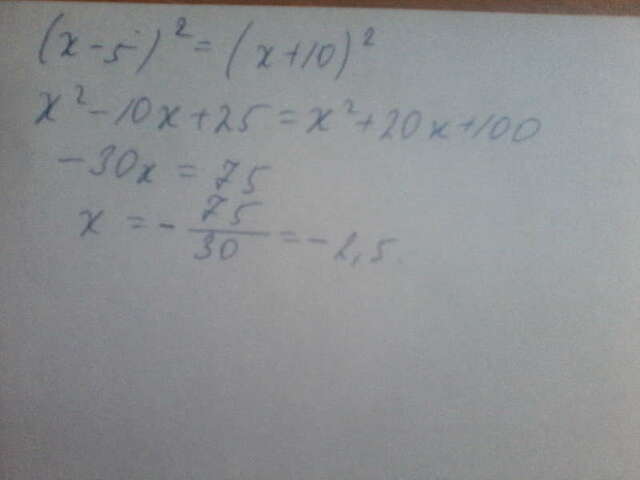 (x-5)² = (x+10)²
x²-10x+25 = x²+20x+100
-30x = 75
x = -75/30 = -2,5.